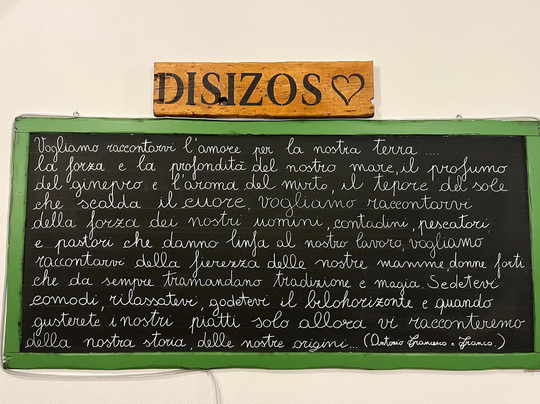 DISIZOS
Vogliamo raccontarvi l'amore per la nostra terra ....
la forza e la profondità del nostro mare, il profumo
del ginepro e l'aroma del mirto, il tepore del sole
che scalda il cuore, vogliamo raccontarvi
della forza dei nostri uomini, contadini, pescatori
e pastori che danno linfa al nostro lavoro, vogliamo
raccontarvi della fierezza delle nostre mamme, donne forti
che da sempre tramandano tradizione e magia. Sedetevi
comodi, rilassatevi, godetevi il belohorizonte e quando
gusterete i nostri piatti solo allora vi racconteremo
della nostra storia, delle nostre origini... (Antonio Francesco e Franco.)